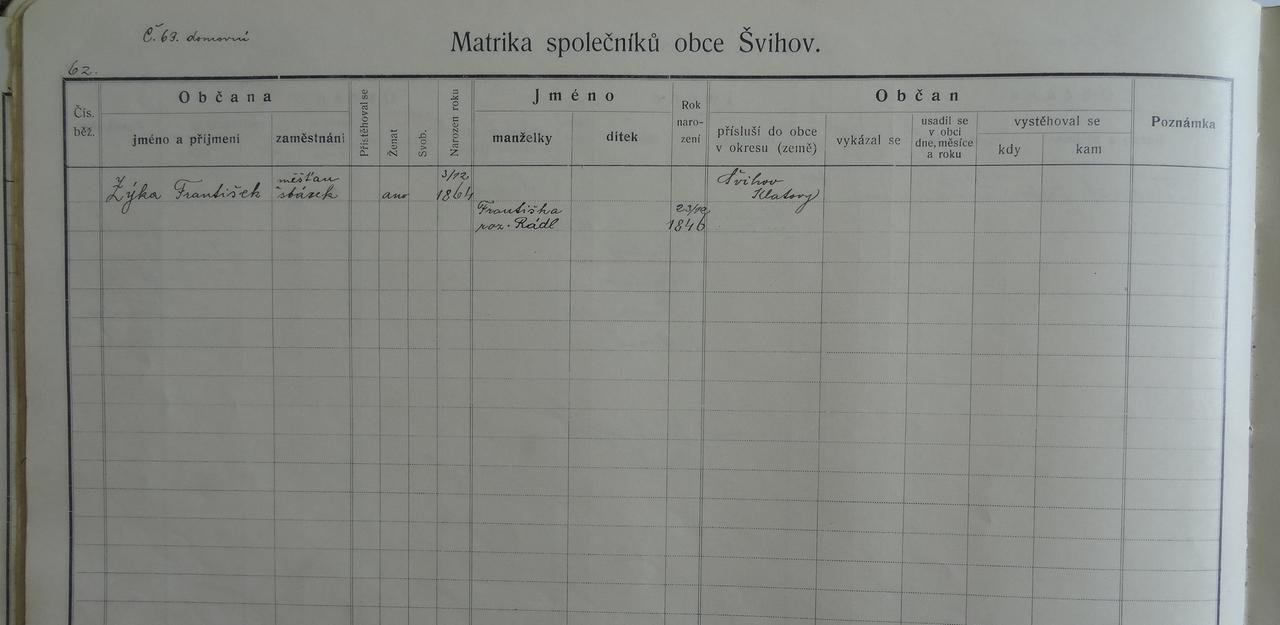 Č. 69. domovní
Matrika společníků obce Švihov.
62.
Čís. běž.
Občana
jméno a příjmení
zaměstnání
Přistěhoval se
Ženat
Svob.
Narozen roku
Jméno
manželky
dítek
Rok naro- zení
Občan
přísluší do obce v okresu (země)
vykázal se
usadil se v obci dne, měsíce a roku
vystěhoval se
kdy
kam
Poznámka
Zýka František
měšťan
ano
3/12
1864
Švihov
Klatovy
Františka
roz. Rádl
23/12
1846